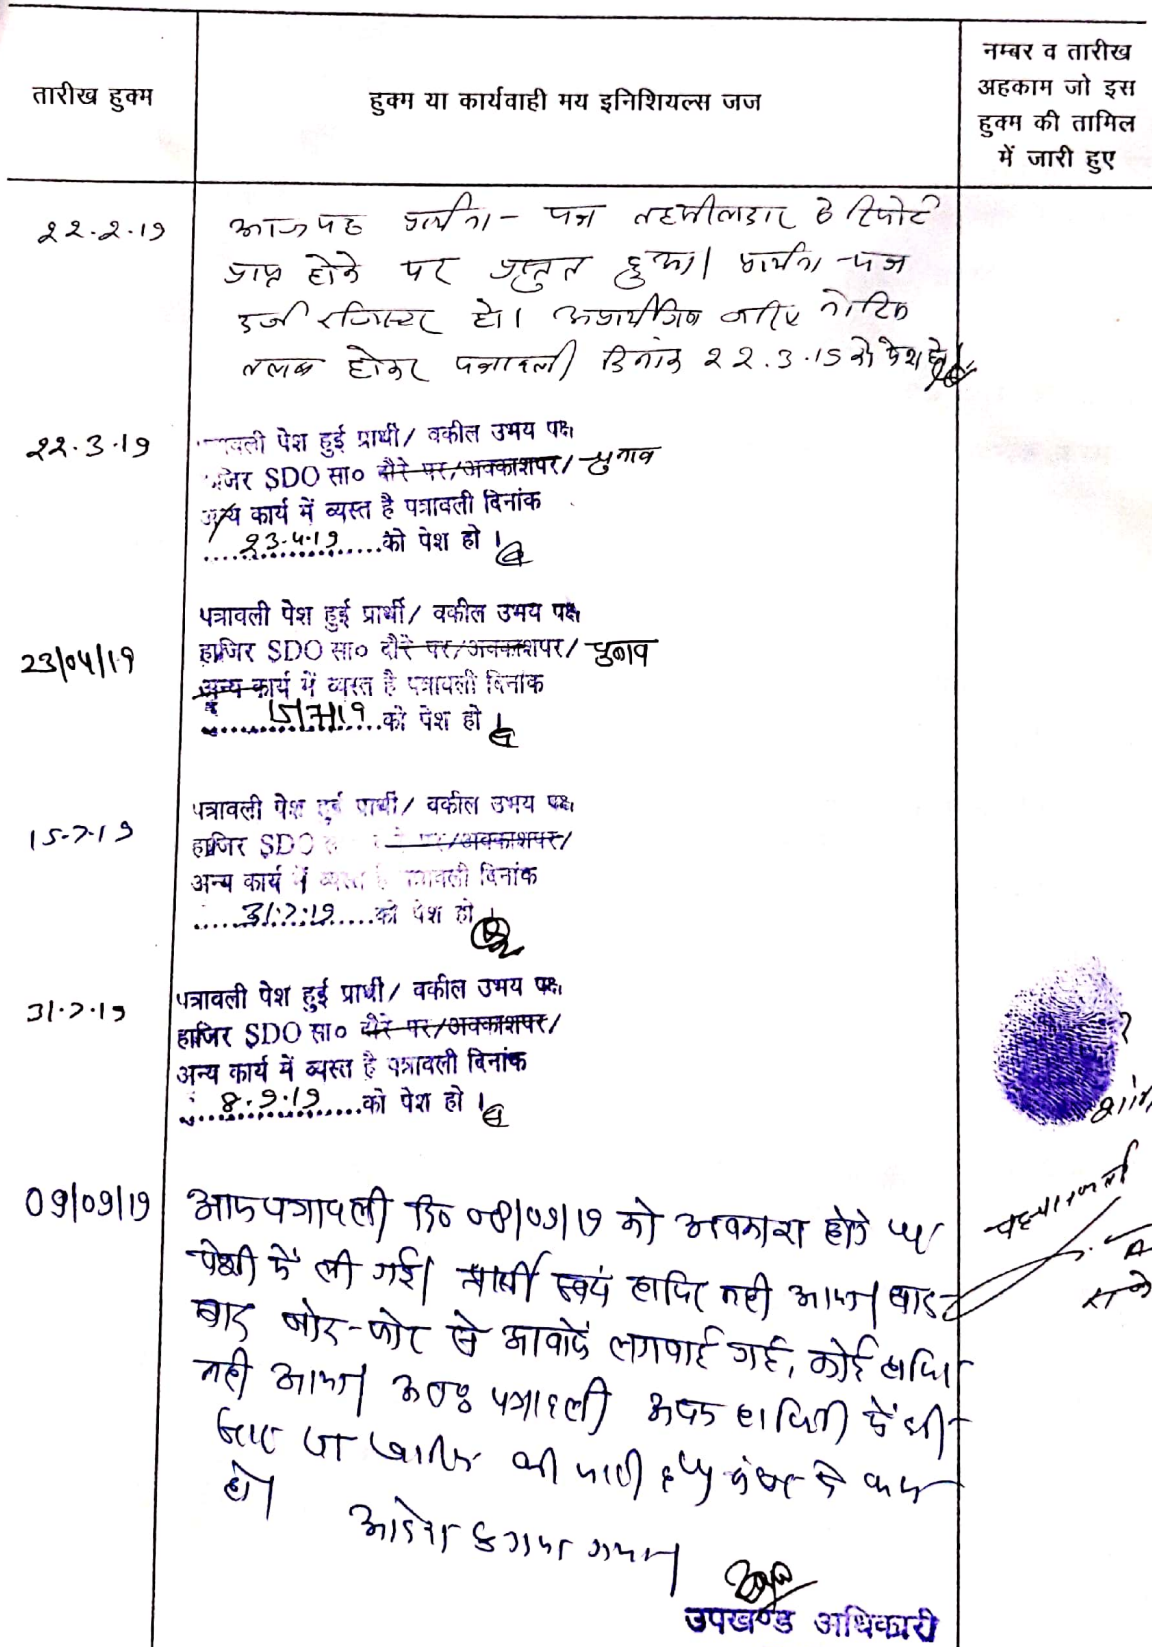 तारीख हुक्म
हुक्म या कार्यवाही मय इनिशियल्स जज
नम्बर व तारीख
अहकाम जो इस
हुक्म की तामिल
में जारी हुए
22.2.19
आज यह प्रार्थना-पत्र तहसीलदार से रिपोर्ट
प्राप्त होने पर प्रस्तुत हुआ। प्रार्थना-पत्र
दर्ज रजिस्टर हो। अप्रार्थीगण जरिए नोटिस
तलब होकर पत्रावली दिनांक 22.3.19 को पेश हो।
22.3.19
वली पेश हुई प्रार्थी/ वकील उभय पक्ष
जिर SDO सा० दौरे पर/अवकाशपर/ चुनाव
अन्य कार्य में व्यस्त है पत्रावली दिनांक
23.4.19 को पेश हो।
23/04/19
पत्रावली पेश हुई प्रार्थी/ वकील उभय पक्ष
हाजिर SDO सा० दौरे पर/अवकाशपर/ चुनाव
अन्य कार्य में व्यस्त है पत्रावली दिनांक
15/7/19 को पेश हो।
15.7.19
पत्रावली पेश हुई प्रार्थी/ वकील उभय पक्ष
हाजिर SDO पर/अवकाशपर/
अन्य कार्य में व्यस्त है पत्रावली दिनांक
31.7.19 को पेश हो।
31.7.19
पत्रावली पेश हुई प्रार्थी/ वकील उभय पक्ष
हाजिर SDO सा० दौरे पर/अवकाशपर/
अन्य कार्य में व्यस्त है पत्रावली दिनांक
8.9.19 को पेश हो।
09/09/19
आज पत्रावली दि० 08/09/19 को अवकाश होने पर
पेशी में ली गई। प्रार्थी स्वयं हाजिर नहीं आया। बार
बार जोर-जोर से आवाजें लगवाई गई, कोई हाजिर
नहीं आया। अतः पत्रावली अदम हाजिरी में ही
खारिज की जाती है। नंबर से कम
हो।
आदेश सुनाया गया।
उपखण्ड अधिकारी